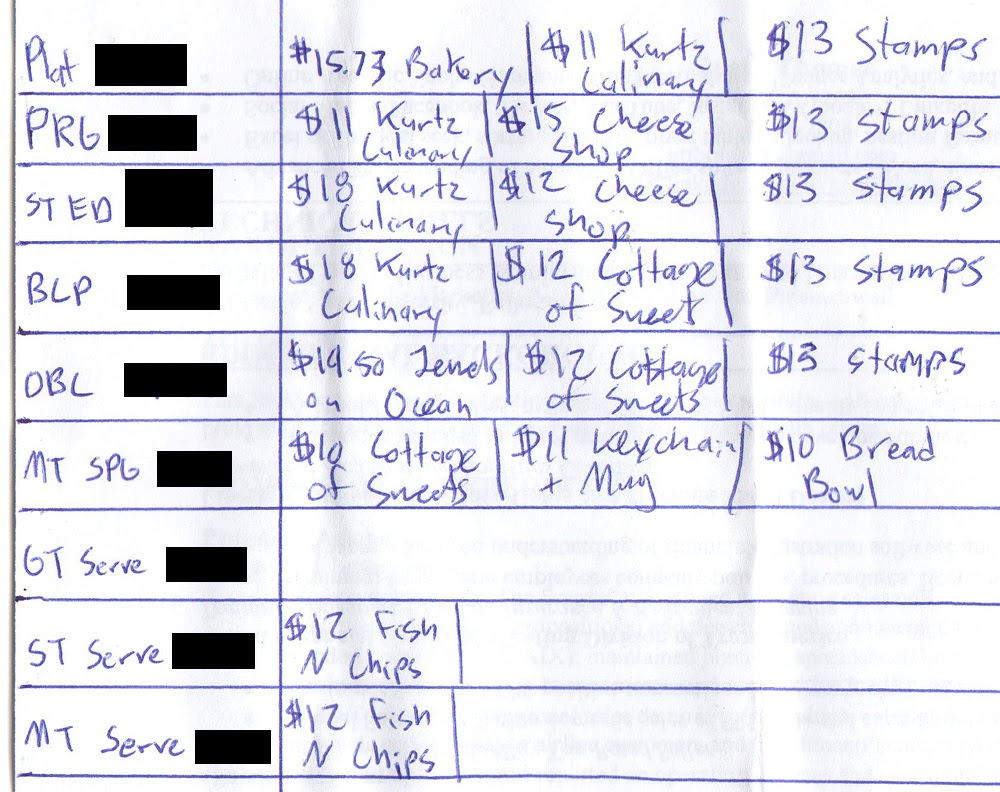 Plat $15.73 Bakery $11 Kurtz Culinary $13 Stamps
PRG $11 Kurtz Culinary $15 Cheese Shop $13 Stamps
ST ED $18 Kurtz Culinary $12 Cheese Shop $13 Stamps
BLP $18 Kurtz Culinary $12 Cottage of Sweet $13 Stamps
OBL on Ocean $12 Cottage of Sweets $13 Stamps
MT SPG Cottage of Sweets $11 Keychain + Mug $10 Bread Bowl
GT Serve
ST Serve $12 Fish N Chips
MT Serve $12 Fish N Chips